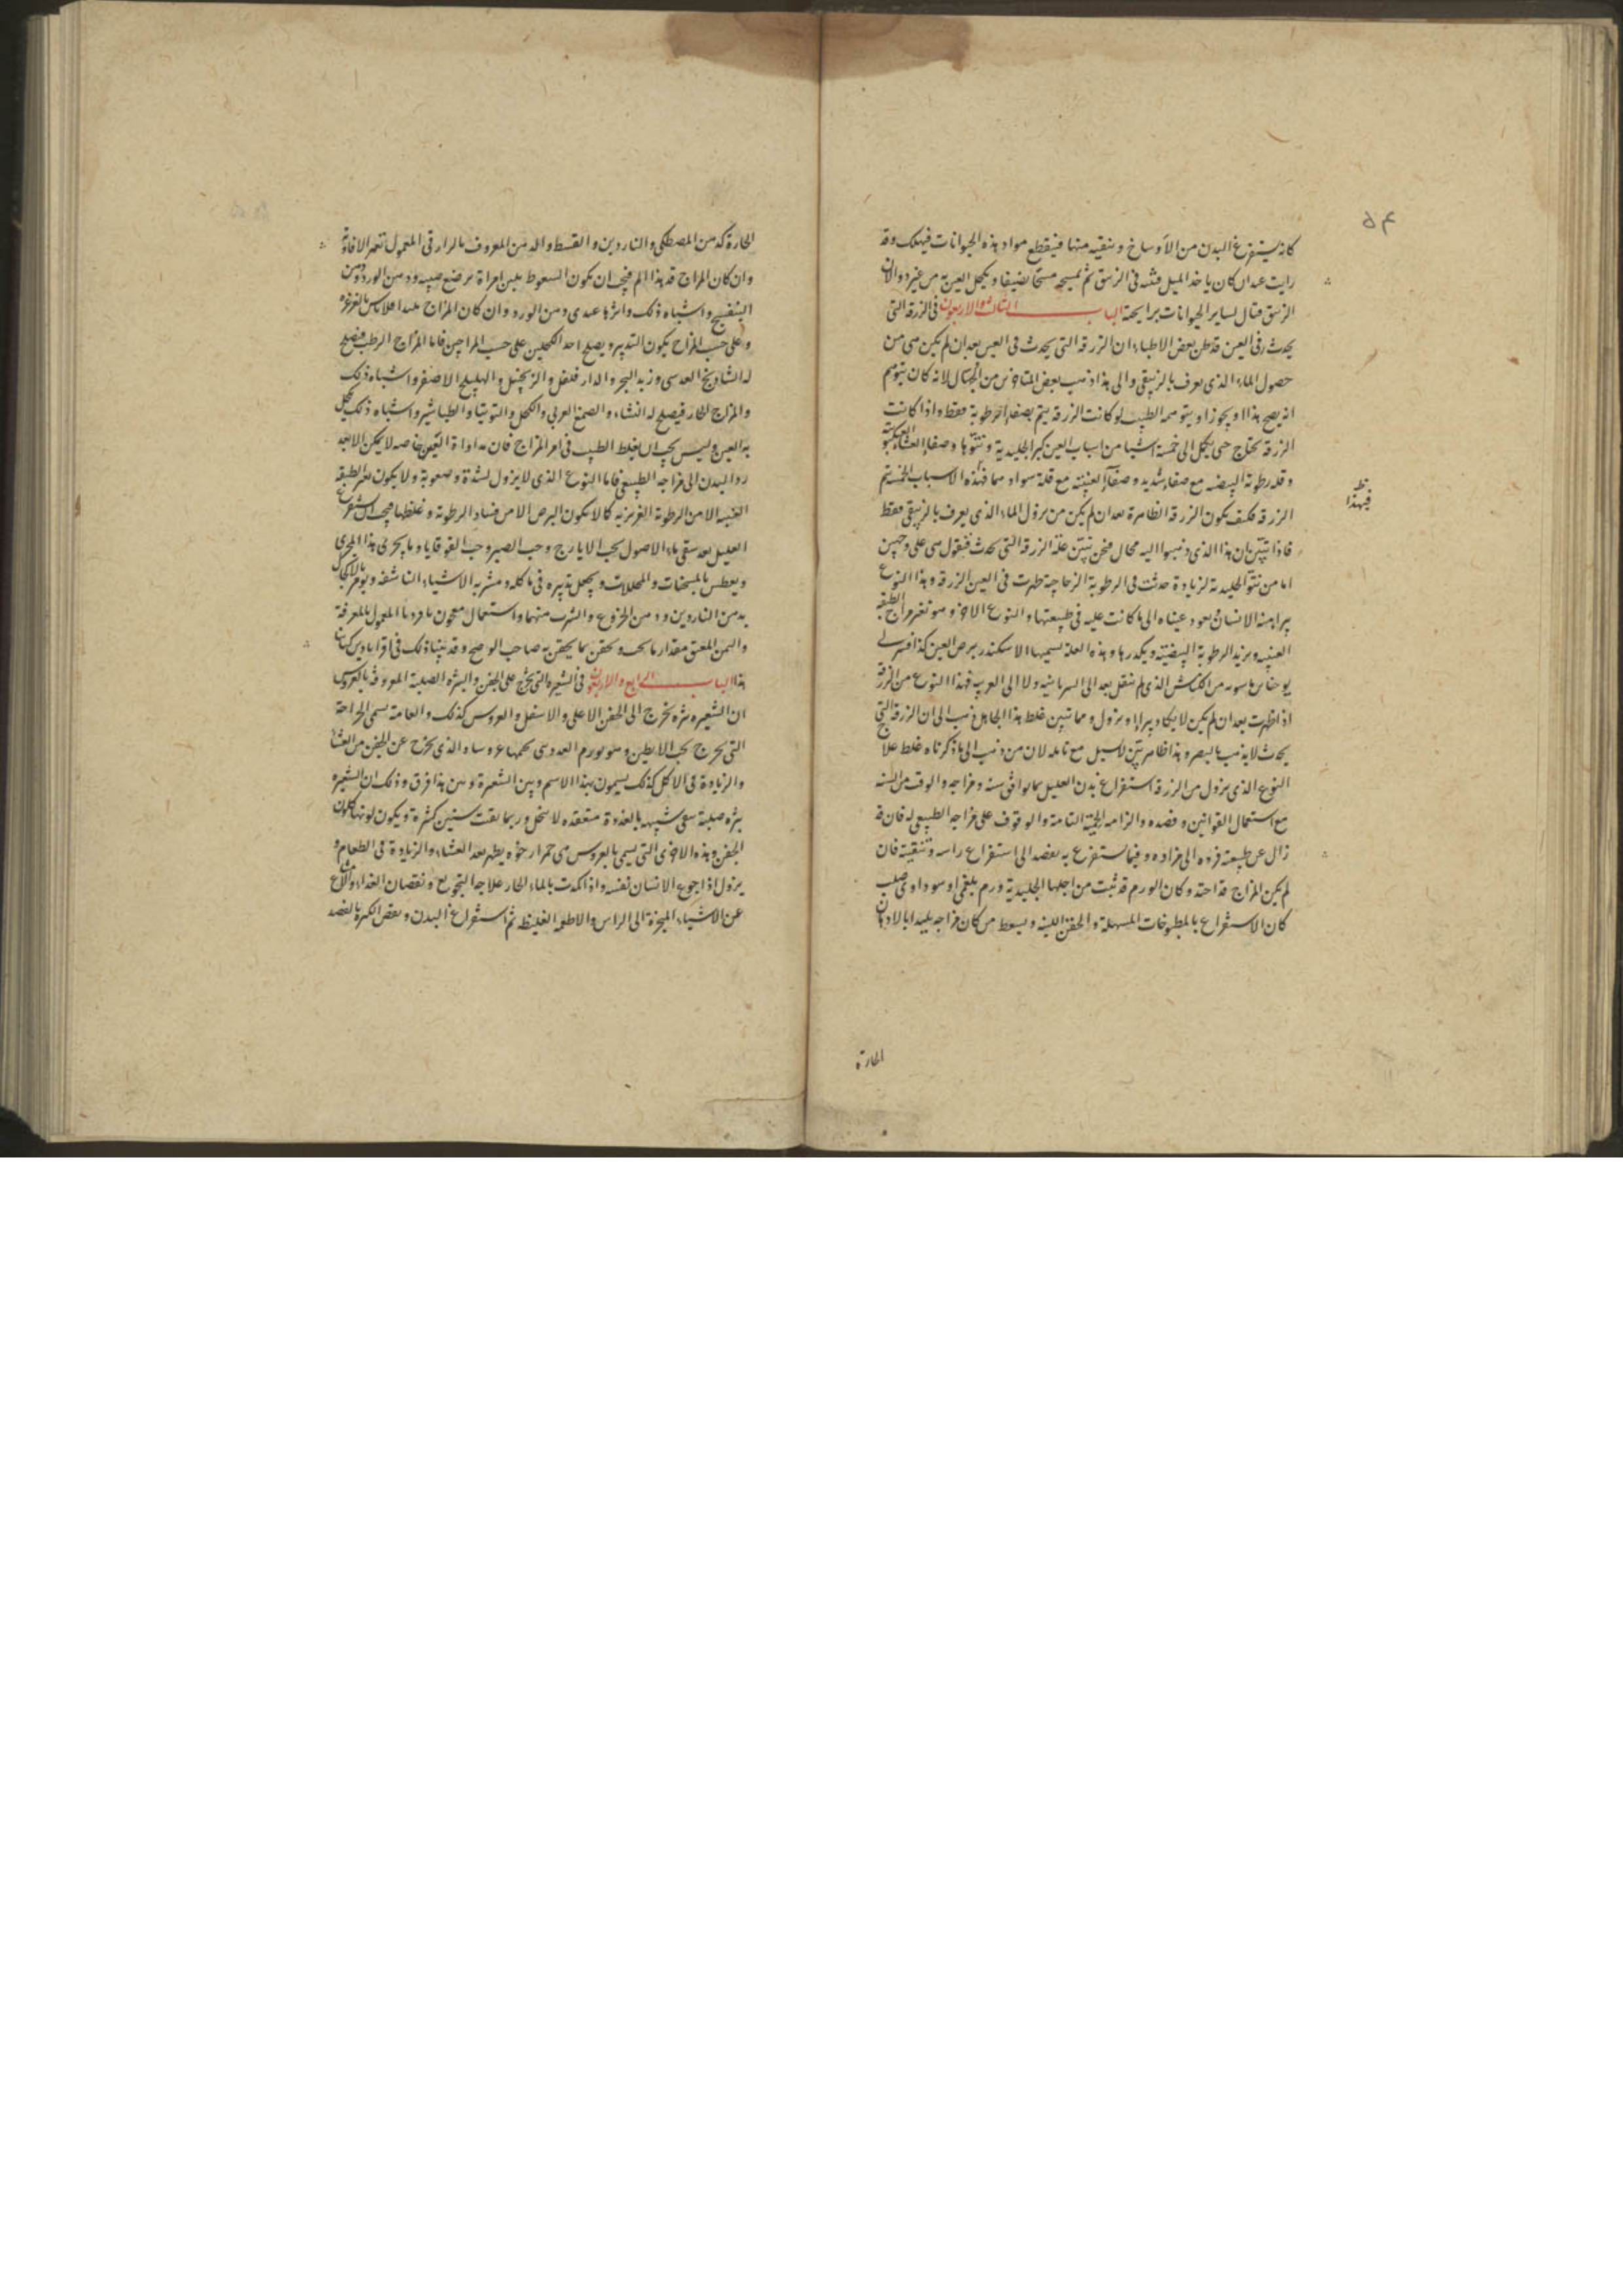 ٥٤
كانه يستفرغ البدن من الأوساخ وينقيه منها فينقطع مواد هذه الحيوانات فيهلك وقد
رايت عبدان كان ياخذ الميل فيثه فى الزيبق ثم يمسحه مسحا ضعيفا ويكحل العين به من غير دوا لان
الزيبق قتال لساير الحيوانات برايحته الباب الثالث والاربعون فى الزرقة التى
يحدث فى العين قد ظن بعض الاطباء ان الزرقه التى يحدث فى العين بعد ان لم يكن هى من
حصول الماء الذى يعرف بالزيبقى والى هذا ذهب بعض المتاخرين من الجهال لانه كان يتوهم
انه يصح هذا او يجوز او يتوهمه الطبيب لو كانت الزرقه يتم بصفاء الرطوبة فقط واذا كانت
الزرقة تحتاج حتى يكمل الى خمسة اشيا من اسباب العين كبر الجليدية ونتوها وصفاء العشاء العنكبوتية
وقله رطوبة البيضه مع صفاء شديد وصفاء العنبيه مع قلة سواد مما فهذه الاسباب الخمسة يتم
الزرقه فكيف يكون الزرقه الظاهرة بعد ان لم يكن من نزول الماء الذى يعرف بالزيبقى فقط
ظ فبهذا
فاذا تبيّن ان هذا الذى ذهبوا اليه محال فنحن نبيّن علة الزرقة التى يحدث فنقول هى على وجهين
اما من نتو الجليديه لزيادة حدثت فى الرطوبة الزجاجية ظهرت فى العين الزرقه وهذا النوع
يبرا منه الانسان يعود عيناه الى ما كانت عليه فى طبيعتها والنوع الاخر وهو تغير مزاج الطبقه
العنبيه ويزيد الرطوبة البيضيّه ويكدرها وهذه العلة يسميها الاسكندر برص العين كذا فسر لى
يوحنا بن ماسويه من الكناش الذى لم ينقل بعد الى السريانيه ولا الى العربيه فهذا النوع من الزرقة
اذا ظهرت بعد ان لم يكن لا يكاد يبرا ويزول ومما تبين غلط هذا الجاهل ذهب الى ان الزرقة التى
يحدث لا يذهب بالبصر وهذا ظاهر بيّن لاسيل مع تامله لان من ذهب الى ما ذكرناه غلط علاج
النوع الذى يزول من الزرقة استفراغ بدن العليل بما يوافق سنه ومزاجه والوقت من السنه
مع استعمال القوانين وفصده والزامه الحمية التامة والوقوف على مزاجه الطبيعى له فان قد
زال عن طبيعته فرده الى مزاده وفيما يستفرغ به يقصد الى استفراغ راسه وتنقيته فان
لم يكن المزاج قد احتد وكان الورم قد ثبت من اجلها الجليدية ورم بلغمى او سوداوى صلب
كان الاستفراغ بالمطبوخات المسهلة والحقن اللينه ويسعط من كان مزاجه بليدا بالادهان
الحارة
الحارة كدهن المصطكى والناردين والقسط والدهن المعروف بالرازقى المعمول بثمر الافاوية
وان كان المزاج قد هذا الم فيجب ان يكون السعوط بلبن امراة ترضع صبيه ودهن الورد ودهن
البنفسج واشباه ذلك واثرها عندى دهن الورد وان كان المزاج بليدا فلا باس بالغرغرة
وعلى حسب المزاج يكون التدبير ويصلح احد الكحلين على حسب المزاجين فاما المزاج الرطب فيصلح
له الشادنج العدسى وزبد البحر والدار فلفل والزنجبيل والهليلج الاصفر واشباه ذلك
والمزاج الحار فيصلح له النشاء والصمغ العربى والكحل والتوتيا والطباشير واشباه ذلك يكحل
به العين وليس يجب ان يغلط الطبيب فى امر المزاج فان مداواة العين خاصه لا يمكن الا بعد
رد البدن الى مزاجه الطبيعى فاما النوع الذى لا يزول لشدة وصعوبة ولا يكون تغير الطبقه
العنبيه الا من الرطوبة الغريزيه كما لا يكون البرص الا من فساد الرطوبة وغلظها فيجب ان يستفرغ
العليل بعد سقى ماء الاصول بحب الايارج وحب الصبر وحب القوقايا وما يجرى هذا المجرى
ويعطس بالمسخنات والمحللات ويجعل تدبيره فى ماكله ومشربه الاشياء الناشفه ويومر بالاكتحال
بدهن الناردين ودهن الخروع والشرب منهما واستعمال معجون ما فردنا المعمول بالمعرفة
والسمن المعتق مقدار ما يجب ويحقن بما يحقن به صاحب الوضح وقد بيّنا ذلك فى اقراباذين كتابنا
هذا الباب الرابع والاربعون فى الشعيره التى يخرج على الجفن والبثره الصلبة المعروفة بالعروس
ان الشعيره بثره يخرج الى الجفن الاعلى والاسفل والعروس كذلك والعامة يسمى الجراحة
التى يخرج تحت الابطين وهو بورم الغددى يحمها عروسا والذى يخرج عن الجفن من العشا
والزيادة فى الاكل كذلك يسمون بهذا الاسم وبين الشعيرة وبين هذا فرق وذلك ان الشعيره
بثره صلبة تبقى شبيهه بالغدة منعقده لا تنحل وربما بقيت سنين كثيرة ويكون لونها كلون
الجفن وهذه الاخرى التى يسمى بالعروس هى حمرا رخوه يظهر بعد العشاء والزيادة فى الطعام و
يزول اذا جوع الانسان نفسه واذا كمدت بالماء الحار علاجها التجويع ونقصان الغداء والامتناع
عن الاشياء المبخرة الى الراس والاطعمه الغليظه ثم استفراغ البدن وبعض الكبره بالفصد